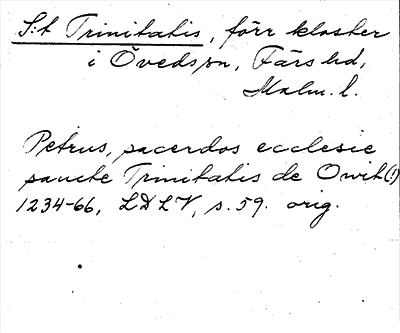 S:t Trinitatis, förr kloster
i Övedssn, Färs hd,
Malm. l.
Petrus, sacerdos ecclesie
sancte Trinitatis de Owit(!)
1234-66, LDLV, s. 59. orig.